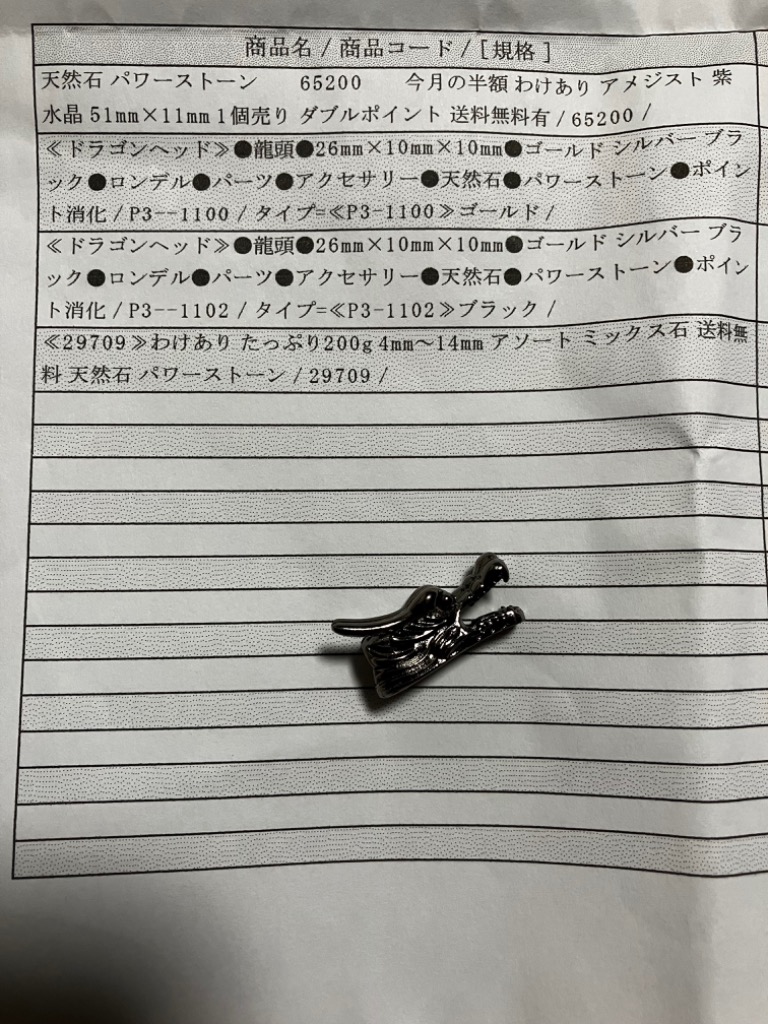 商品名 / 商品コード / [ 規格 ]
天然石 パワーストーン 65200 今月の半額 わけあり アメジスト 紫
水晶 51mm×11mm 1個売り ダブルポイント 送料無料有 / 65200 /
≪ドラゴンヘッド≫●龍頭●26mm×10mm×10mm●ゴールド シルバー ブラ
ック●ロンデル●パーツ●アクセサリー●天然石●パワーストーン●ポイン
ト消化 / P3--1100 / タイプ=≪P3-1100≫ゴールド /
≪ドラゴンヘッド≫●龍頭●26mm×10mm×10mm●ゴールド シルバー ブラ
ック●ロンデル●パーツ●アクセサリー●天然石●パワーストーン●ポイン
ト消化 / P3--1102 / タイプ=≪P3-1102≫ブラック /
≪29709≫わけあり たっぷり200g 4mm～14mm アソート ミックス石 送料無
料 天然石 パワーストーン / 29709 /